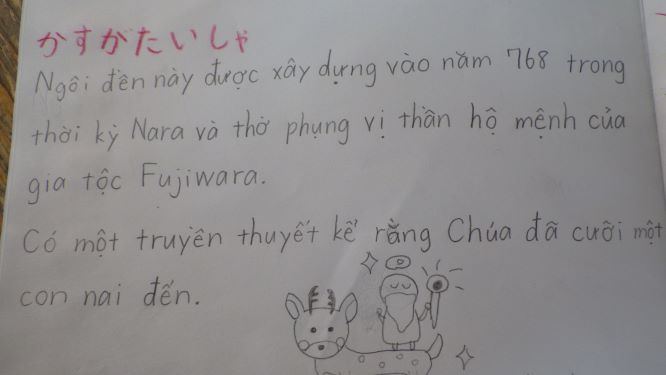 かすがたいしゃ
Ngôi đền này được xây dựng vào năm 768 trong
thời kỳ Nara và thờ phụng vị thần hộ mệnh của
gia tộc Fujiwara.
Có một truyền thuyết kể rằng Chúa đã cưỡi một
con nai đến.